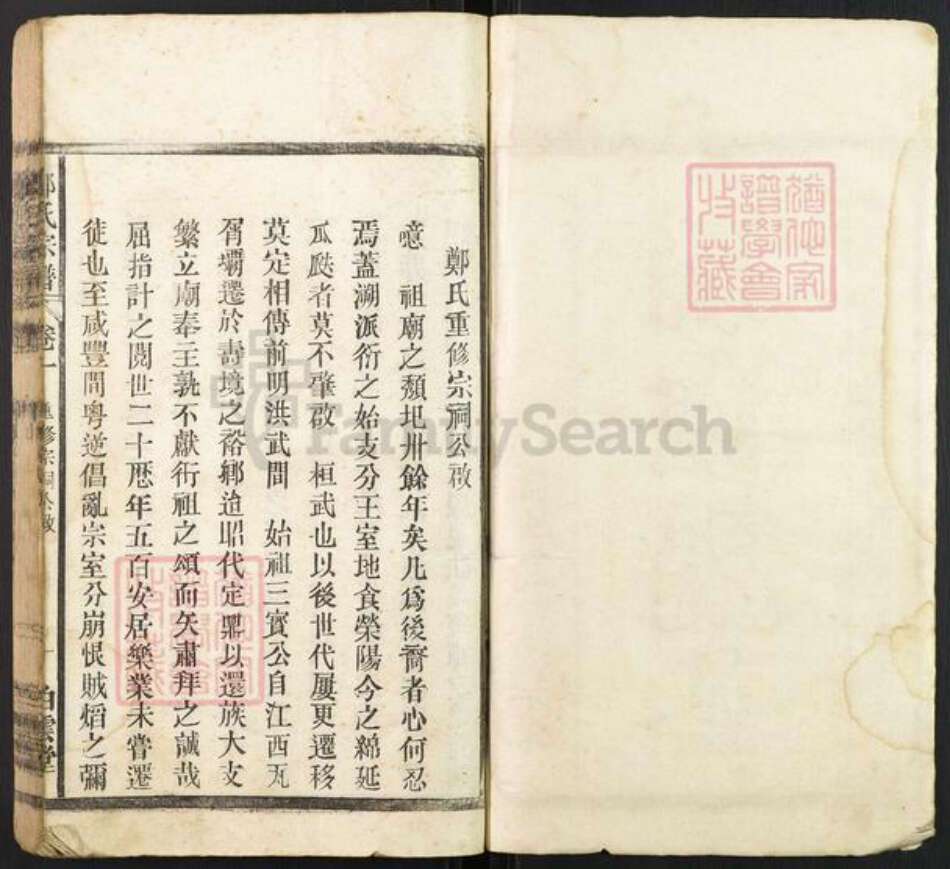 鄭氏重修宗祠公啟
噫 祖廟之頹圯卅餘年矣凡爲後裔者心何忍
焉蓋溯派衍之始支分王室地食榮陽今之綿延
瓜瓞者莫不肇啟 桓武也以後世代屢更遷移
莫定相傳前明洪武間 始祖三寳公自江西瓦
屑壩遷於壽境之裕鄉迨昭代定鼎以還族大支
繁立廟奉主孰不獻衎祖之頌而矢肅拜之誠哉
屈指計之閱世二十歷年五百安居樂業未嘗遷
徒也至咸豐間粤逆倡亂宗室分崩恨賊熖之彌
鄭氏宗譜 卷一 重修宗祠公啟 一 白雲堂
猶他家
譜學會
收藏
FamilySearch